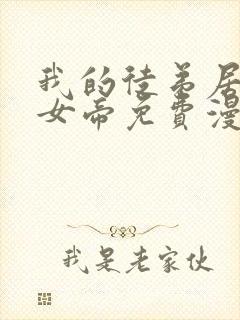 我的徒弟居
女帝免费漫
我是老家伙